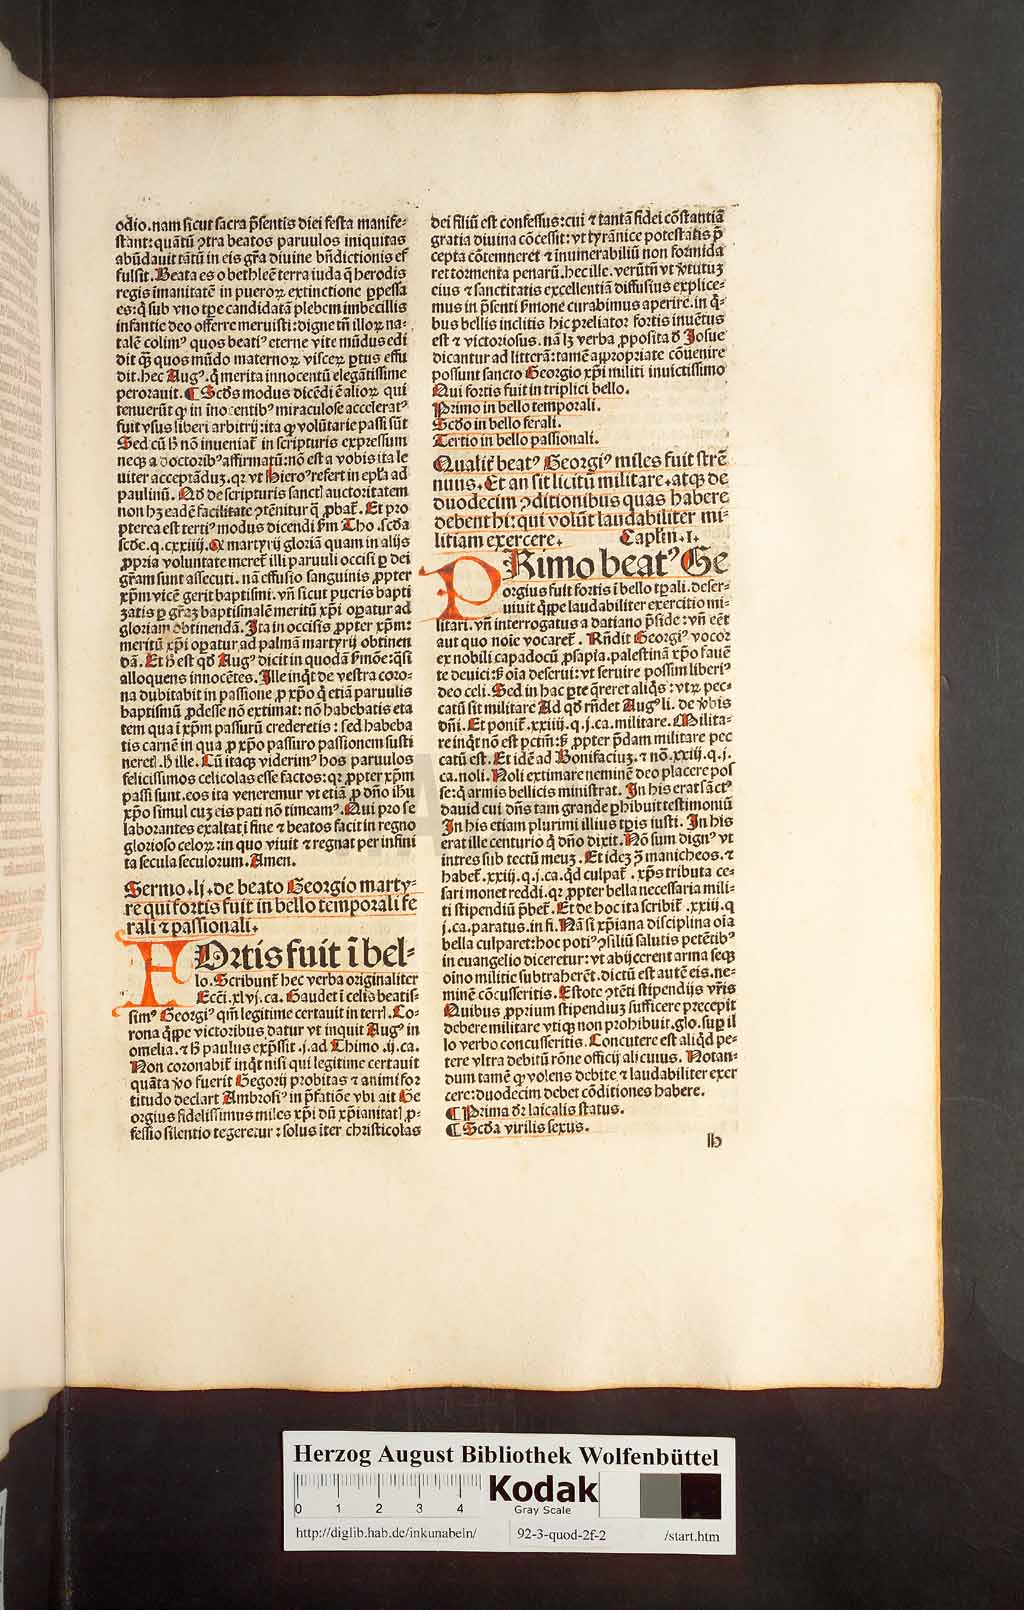 odio.nam sicut sacra p̄sentis diei festa manife-
stant: quātū ꝯtra beatos paruulos iniquitas
abūdauit tātū in eis gr̄a diuine bn̄dictionis ef
fulsit. Beata es o bethleē terra iuda q̄ herodis
regis īmanitatē in pueroꝝ extinctione ꝑpessa
es: q̄ sub vno tꝑe candidatā plebem imbecillis
infantie deo offerre meruisti: digne tn̄ illoꝝ na-
talē colimꝰ quos beatiꝰ eterne vite mūdus edi
dit qꝫ quos mūdo maternoꝝ visceꝝ ꝑtus effu
dit. hec Augꝰ. q̄ merita innocentū elegātissime
perorauit. ¶ Scd̄s modus dicēdi ē alioꝝ qui
tenuerūt ꝙ in īnocentibꝰ miraculose acceleratꝰ
fuit vsus liberi arbitrij: ita ꝙ volūtarie passi sūt
Sed cū h̄ nō inueniat̄ in scripturis expressum
neqꝫ a doctoribꝰ affirmatū: nō est a vobis ita le
uiter acceptāduꝫ. qꝛ vt Hieroꝰ refert in epl̄a ad
paulinū. Ad de scripturis sanctꝭ auctoritatem
non hꝫ eadē facilitate ꝯtēnitur q̄ ꝓbat̄. Et pro
pterea est tertiꝰ modus dicendi ẜm Tho. scd̄a
scd̄e. q. cxxiiij. Ꝙ martyrij gloriā quam in alijs
ꝓpria voluntate meret̄ illi paruuli occisi ꝑ dei
gr̄am sunt assecuti. nā effusio sanguinis ꝓpter
xp̄m vicē gerit baptismi. vn̄ sicut pueris bapti
zatis ꝑ gr̄aꝫ baptismalē meritū xp̄i oꝑatur ad
gloriam obtinendā. Ita in occisis ꝓpter xp̄m:
meritū xp̄i oꝑatur ad palmā martyrij obtinen
dā. Et h̄ est qd̄ Augꝰ dicit in quodā ẜmōe: q̄si
alloquens innocētes. Ille inqt̄ de vestra coro-
na dubitabit in passione ꝓ xp̄o q̄ etiā paruulis
baptismū ꝓdesse nō extimat: nō habebatis eta
tem qua ī xp̄m passurū crederetis: sed habeba
tis carnē in qua ꝓ xp̄o passuro passionem susti
neretꝭ. h̄ ille. Cū itaqꝫ viderimꝰ hos paruulos
felicissimos celicolas esse factos: qꝛ ꝓpter xp̄m
passi sunt. eos ita veneremur vt etiā ꝓ dn̄o ih̄u
xp̄o simul cuꝫ eis pati nō timeamꝰ. Qui pro se
laborantes exaltat ī fine ⁊ beatos facit in regno
glorioso celoꝝ: in quo viuit ⁊ regnat per infini
ta secula seculorum. Amen.
Sermo. lj. de beato Georgio marty-
re qui fortis fuit in bello temporali fe
rali ⁊ passionali.
FOrtis fuit ī bel-
lo. Scribunt̄ hec verba originaliter
Ecc̄i. xlvj. ca. Gaudet ī celis beatis-
simꝰ Georgiꝰ qm̄ legitime certauit in terrꝭ. Co-
rona q̄ppe victoribus datur vt inquit Augꝰ in
omelia. ⁊ h̄ paulus exp̄ssit. j. ad Thimo. ij. ca.
Non coronabit̄ inqt̄ nisi qui legitime certauit
quāta v̄o fuerit Gegorij probitas ⁊ animi for
titudo declart Ambrosiꝰ in p̄fatiōe vbi ait Ge
orgius fidelissimus miles xp̄i dū xp̄ianitatꝭ ꝓ-
fessio silentio tegeretur: solus īter christicolas
dei filiū est confessus: cui ⁊ tantā fidei cōstantiā
gratia diuina cōcessit: vt tyrānice potestatis p̄
cepta cōtemneret ⁊ inumerabiliū non formida
ret tormenta penarū. hec ille. verūtn̄ vt v̄tutuꝫ
eius ⁊ sanctitatis excellentiā diffusius explice-
mus in p̄senti ẜmone curabimus aperire. in q̄-
bus bellis inclitis hic preliator fortis inuētus
est ⁊ victoriosus. nā lꝫ verba ꝓposita d̄ Iosue
dicantur ad litterā: tamē appropriate cōuenire
possunt sancto Georgio xp̄i militi inuictissimo
Qui fortis fuit in triplici bello.
Primo in bello temporali.
Scd̄o in bello ferali.
Tertio in bello passionali.
Qualit̄ beatꝰ Georgiꝰ miles fuit strē
nuus. Et an sit licitū militare. atqꝫ de
duodecim ꝯditionibus quas habere
debent hi: qui volūt laudabiliter mi-
litiam exercere. Caplm̄. I.
PRimo beatꝰ Ge
orgius fuit fortis ī bello tꝑali. deser-
uiuit q̄ppe laudabiliter exercitio mi-
litari. vn̄ interrogatus a datiano p̄side: vn̄ eēt
aut quo noīe vocaret̄. Rn̄dit Georgiꝰ vocor
ex nobili capadocū ꝓsapia. palestinā xp̄o fauē
te deuici: ẜ oīa deserui: vt seruire possim liberiꝰ
deo celi. Sed in hac ꝑte q̄reret aliq̄s: vtꝝ pec-
catū sit militare Ad qd̄ rn̄det Augꝰ li. de v̄bis
dn̄i. Et ponit̄. xxiij. q. j. ca. militare. Milita-
re inqt̄ nō est pctm̄: ẜ ꝓpter p̄dam militare pec
catū est. Et idē ad Bonifaciuꝫ. ⁊ nō. xxiij. q. j.
ca. noli. Noli extimare neminē deo placere pos
se: q̄ armis bellicis ministrat. In his erat sāctꝰ
dauid cui dn̄s tam grande ꝑhibuit testimoniū
In his etiam plurimi illius tꝑis iusti. In his
erat ille centurio q̄ dn̄o dixit. Nō sum dignꝰ vt
intres sub tectū meuꝫ. Et ideꝫ ꝯ̄ manicheos. ⁊
habet̄. xxiij. q. j. ca. qd̄ culpat̄. xp̄s tributa ce-
sari monet reddi. qꝛ ꝓpter bella necessaria mili-
ti stipendiū p̄bet̄. Et de hoc ita scribit̄. xxiij. q
j. ca. paratus. in fi. Nā si xp̄iana disciplina oīa
bella culparet: hoc potiꝰ ꝯsiliū salutis petētibꝰ
in euangelio diceretur: vt abijcerent arma seqꝫ
oīno militie subtraherēt. dictū est autē eis. ne-
minē cōcusseritis. Estote ꝯtēti stipendijs vr̄is
Quibus ꝓprium stipendiuꝫ sufficere precepit
debere militare vtiqꝫ non prohibuit. glo. suꝑ il
lo verbo concusseritis. Concutere est aliqd̄ pe-
tere vltra debitū rōne officij alicuius. Notan-
dum tamē ꝙ volens debite ⁊ laudabiliter exer
cere: duodecim debet cōditiones habere.
¶ Prima dr̄ laicalis status.
¶ Scd̄a virilis sexus.
lb
Herzog August Bibliothek Wolfenbüttel
0 1 2 3 4
Kodak
Gray Scale
http://diglib.hab.de/inkunabeln/ 92-3-quod-2f-2 /start.htm